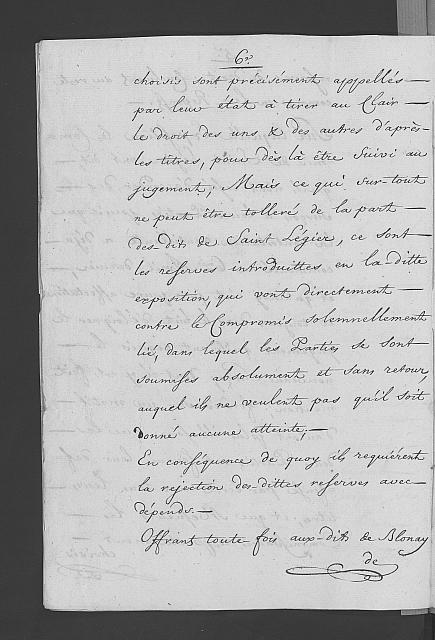 6.°
choisis sont précisément appellés —
par leur état à tirer au Clair —
le droit des uns & des autres d'après-
les titres, pour dès là être Suivi au
jugement; Mais ce qui sur-tout
ne peut être tolleré de la part —
des-dits de Saint Légier, ce sont —
les reserves introduittes en la ditte
exposition, qui vont directement —
contre le Compromis solemnellement
lié, dans lequel les Parties se sont
soumises absolument et sans retour,
auquel ils ne veulent pas qu'il soit
donné aucune atteinte; —
En conséquence de quoy ils requiérent
la rejection des-dittes reserves avec —
dépends. —
Offrant toute fois aux-dits de Blonay
de